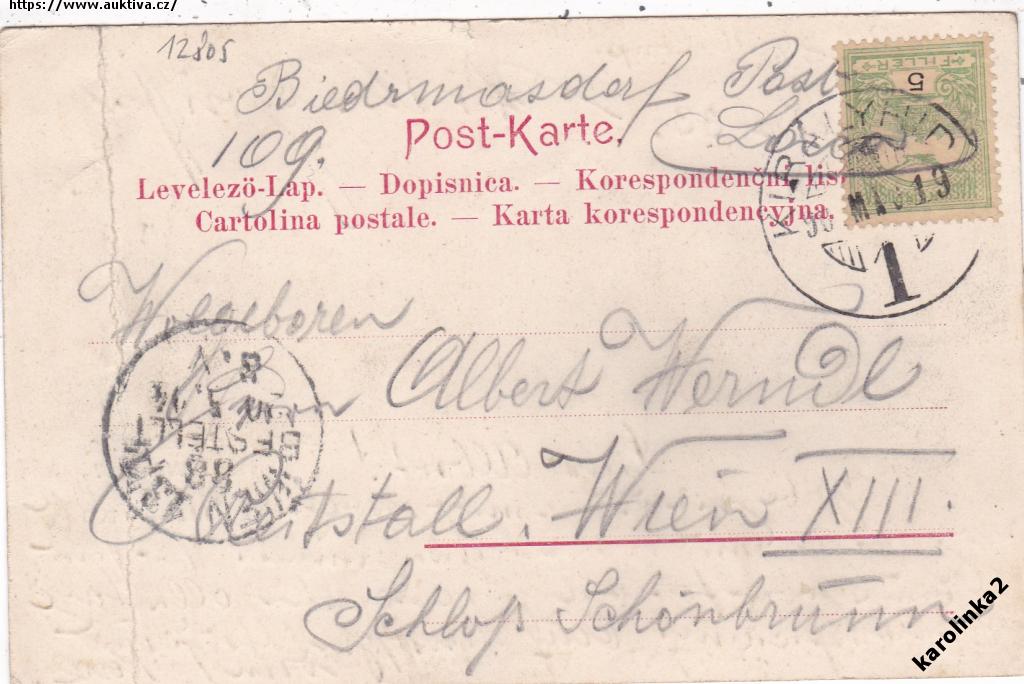 https://www.auktiva.cz/
12805
Biedrmasdorf Post
109.
Post-Karte.
Levelezö-Lap. — Dopisnica. — Korespondenční lis
Cartolina postale. — Karta korespondencyjna.
FILLER
5
KIRÁLY
MÁJ 19
1
Wolgeboren
Herrn Albert Werndl
Reitstall, Wien XIII.
Schloß Schönbrunn
BESTELLT
karolinka2